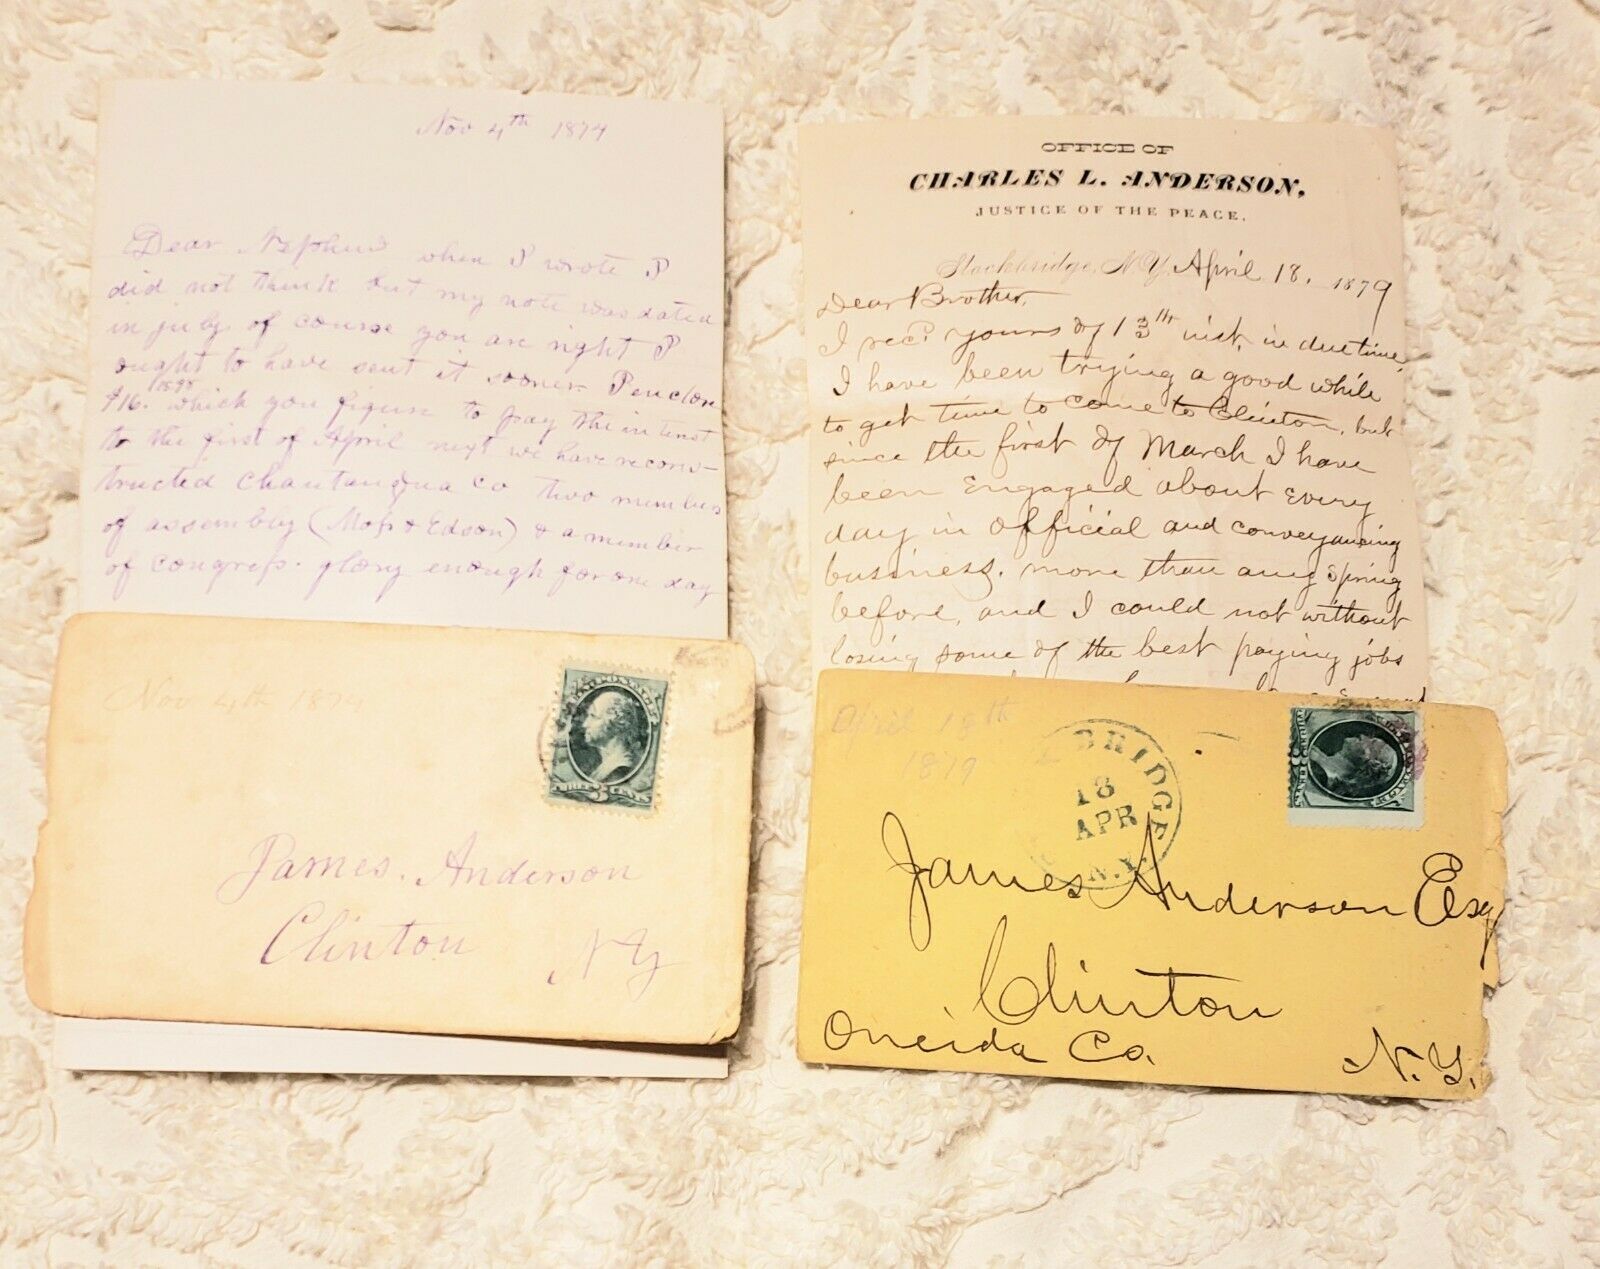 Nov 4th 1874
Dear Nephew when I wrote I
did not think but my note was dated
in july. of course you are right I
ought to have sent it sooner
$16. which you figure to pay the interest
to the first of April next we have recons-
tructed Chautauqua co two members
of assembly (Moss & Edson) & a member
of congress. glory enough for one day
Nov 4th 1874
THREE 3 CENTS
James. Anderson
Clinton
N Y
OFFICE OF
CHARLES L. ANDERSON,
JUSTICE OF THE PEACE.
Stockbridge, N.Y. April 18. 1879
Dear Brother.
I recd. yours of inst. in due time,
I have been trying a good while
to get time to come to Clinton, but
since the first of March I have
been Engaged about Every
day in Official and conveyancing
business. more than any Spring
before, and I could not without
losing some of the best paying jobs
April 18th
1879
BRIDGE
18
APR
N.Y.
James Anderson Esq
Clinton
Oneida Co.
N.Y.